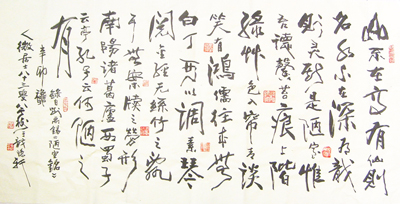 山不在高有仙則
名水不在深有龍
則灵斯是陋室惟
吾德馨苔痕上階
綠草色入簾青談
笑有鴻儒往來無
白丁可以調素琴
閱金經无絲竹之亂
耳無案牘之勞形
南陽諸葛廬西蜀子
云亭孔子云何陋之
有
辛卯
錄唐劉禹錫陋室銘
人微居士八十三叟